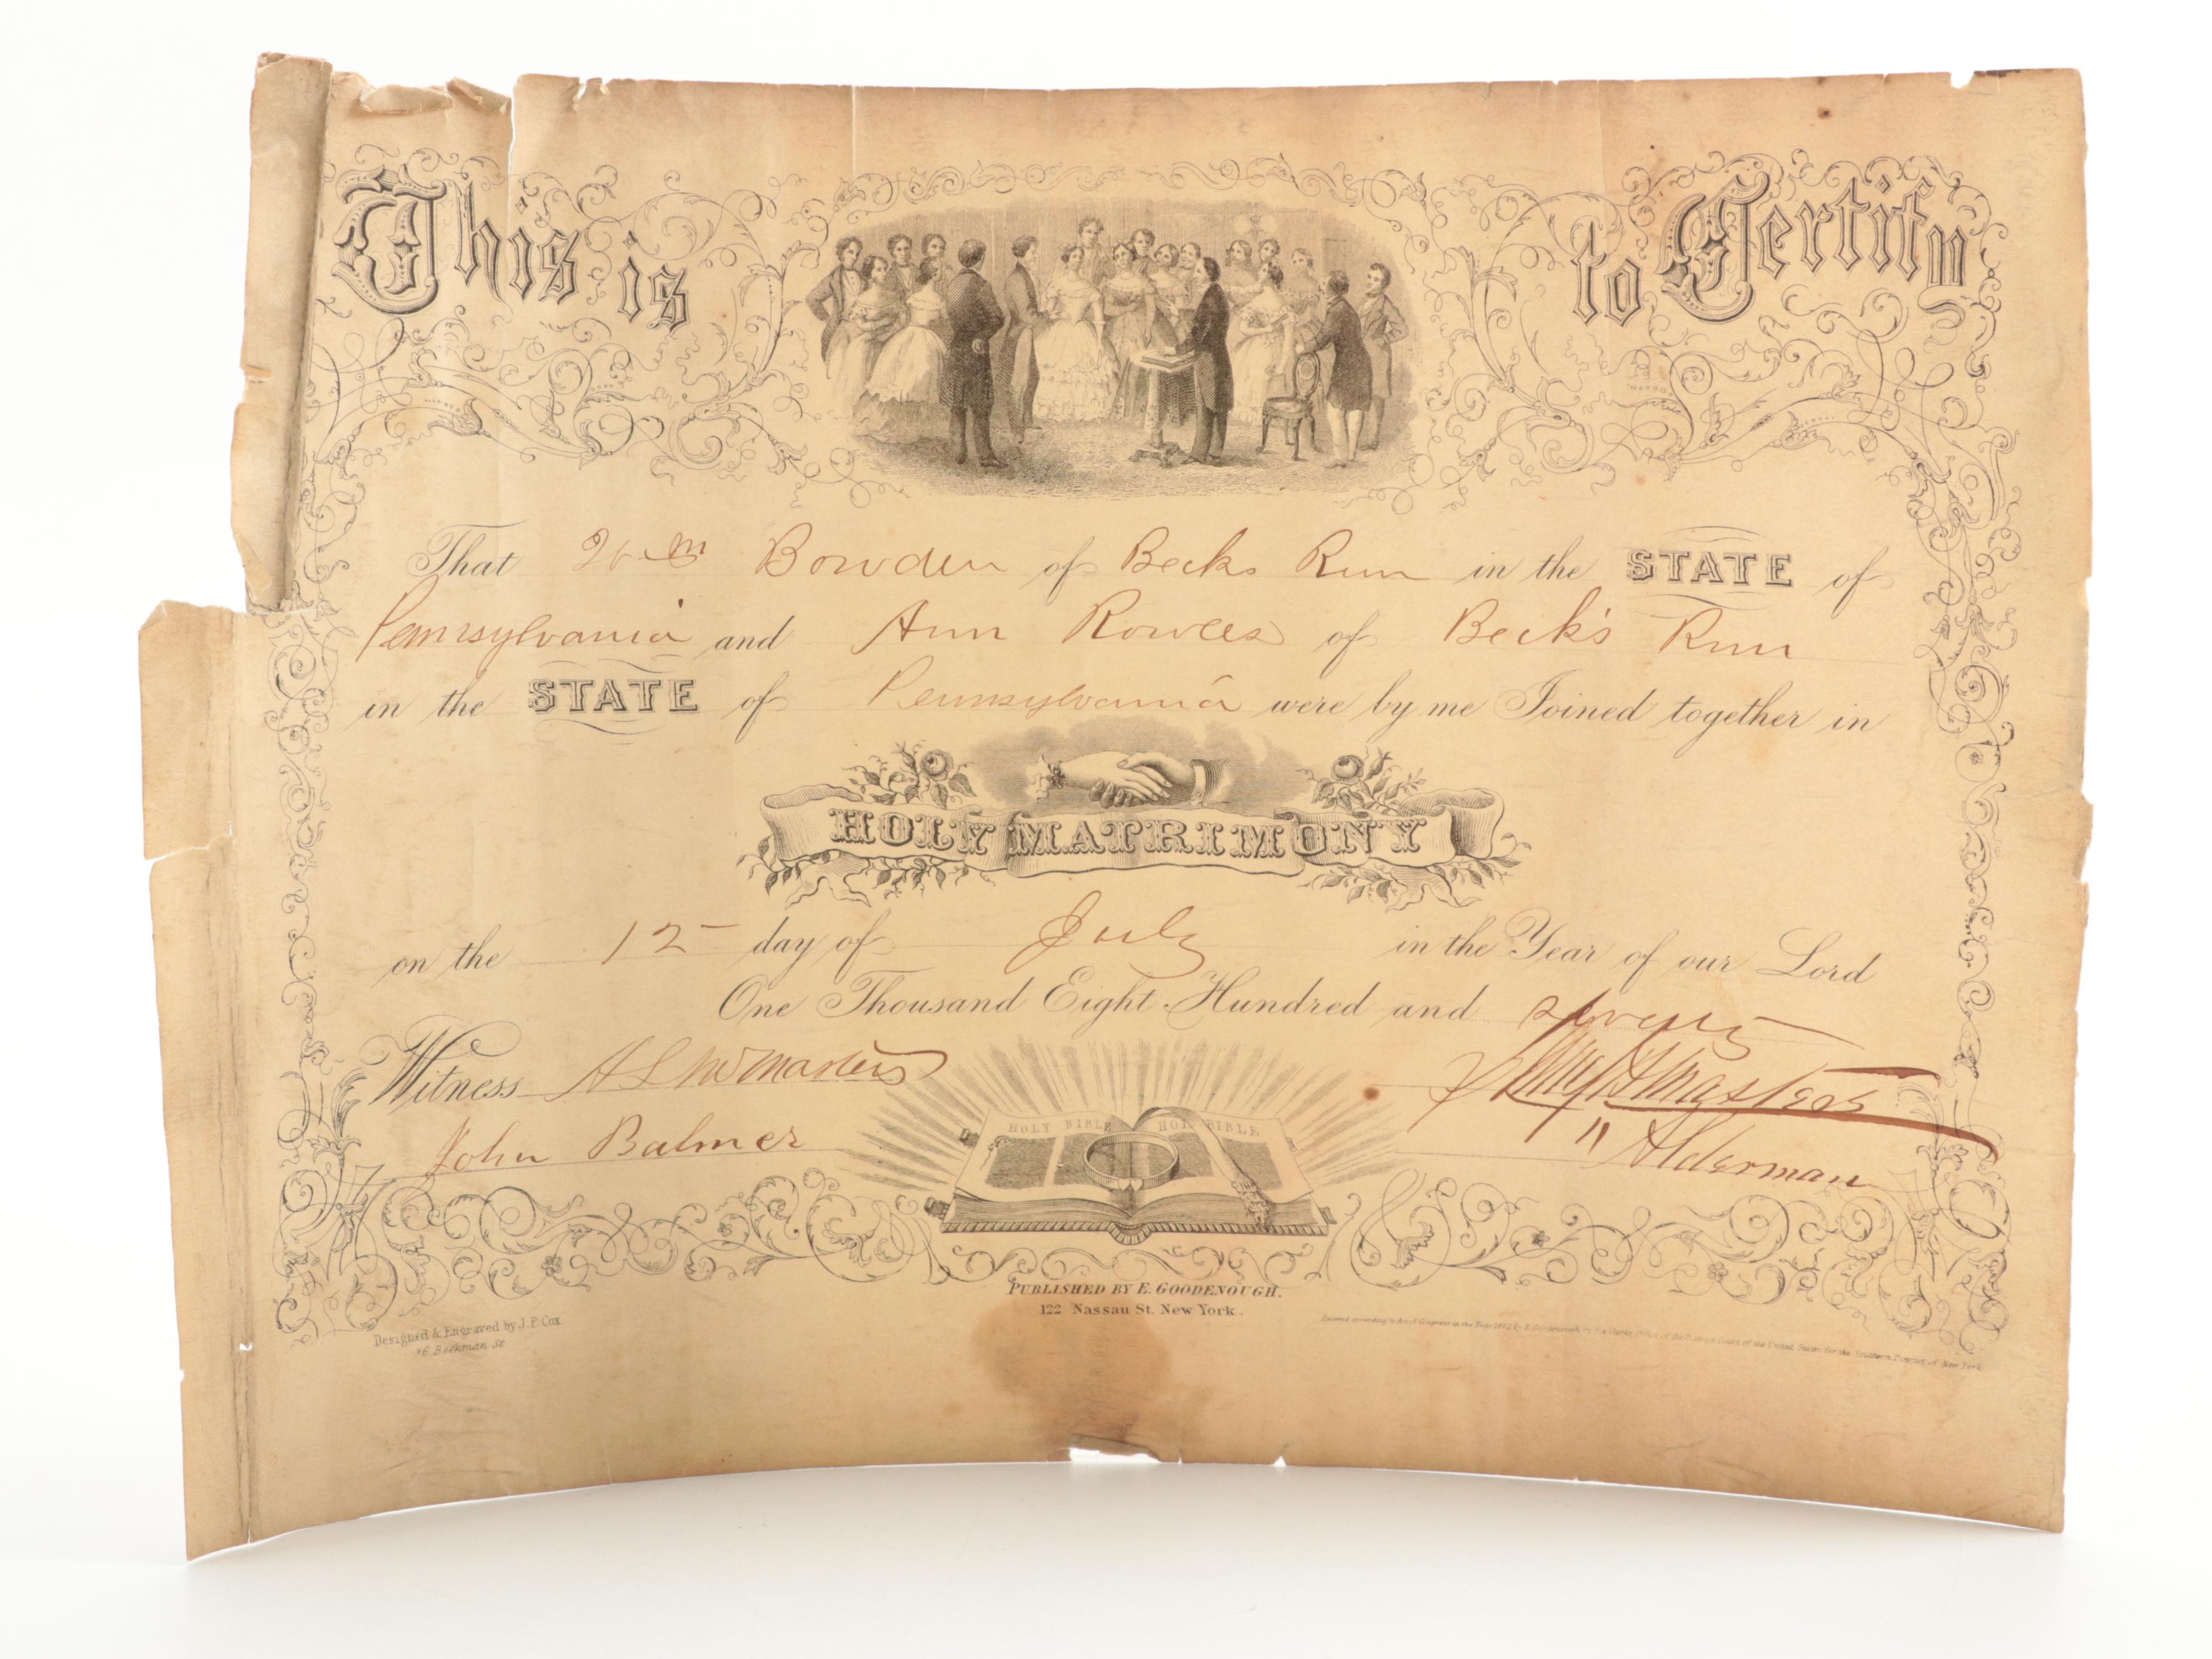 This is to Certify
That Wm Bowden of Becks Run in the STATE of
Pennsylvania and Ann Rowles of Beck's Run
in the STATE of Pennsylvania were by me Joined together in
HOLY MATRIMONY
on the 12 day of July in the Year of our Lord
One Thousand Eight Hundred and seventy
Witness A L McMasters
John Balmer
Alderman
HOLY BIBLE HOLY BIBLE
PUBLISHED BY E. GOODENOUGH.
122 Nassau St. New York.
Designed & Engraved by J. P. Cox
Beekman St
Entered according to Act of Congress in the Year 1862 by E. Goodenough in the Clerks Office of the District Court of the United States for the Southern District of New York